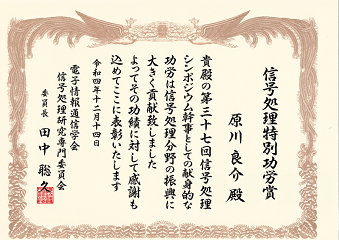 信号処理特別功労賞
原川 良介 殿
貴殿の第三十七回信号処理
シンポジウム幹事としての献身的な
功労は信号処理分野の振興に
大きく貢献致しました
よってその功績に対して感謝も
込めてここに表彰いたします
令和四年十二月十四日
電子情報通信学会
信号処理研究専門委員会
委員長 田中 聡久